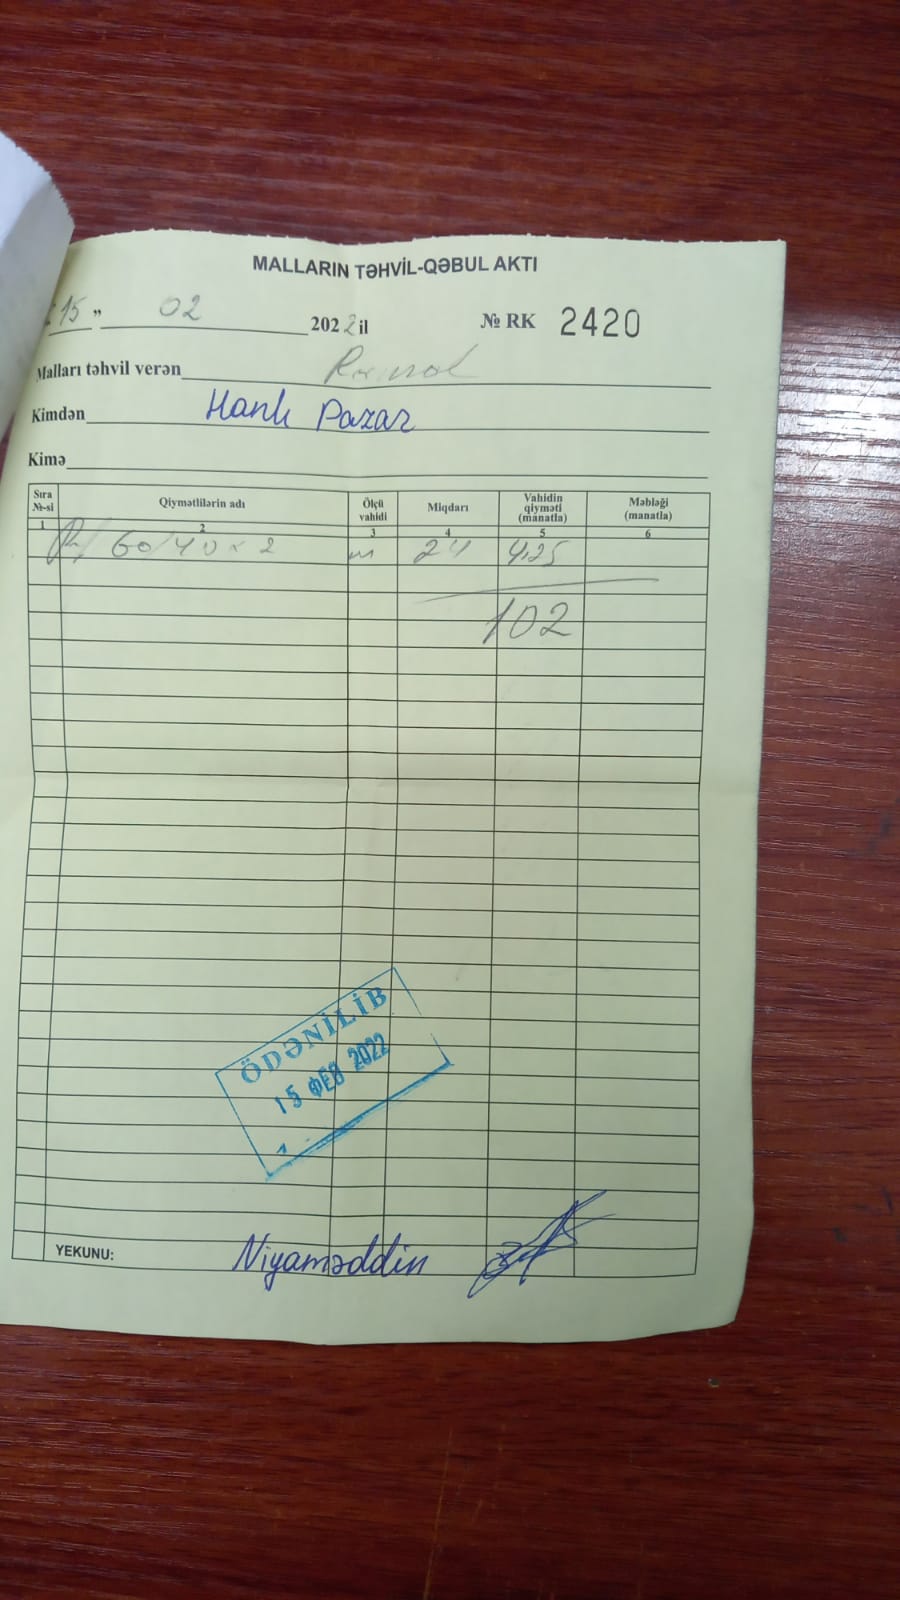 MALLARIN TƏHVİL-QƏBUL AKTI
15 " 02 2022 il № RK 2420
Malları təhvil verən
Kimdən Hanlı Pazar
Kimə
Sıra №-si Qiymətlilərin adı Ölçü vahidi Miqdarı Vahidin qiyməti (manatla) Məbləği (manatla)
1 2 3 4 5 6
60/40 x 2 m 24 4,25
102
ÖDƏNİLİB
15 ФЕВ 2022
YEKUNU: Niyaməddin